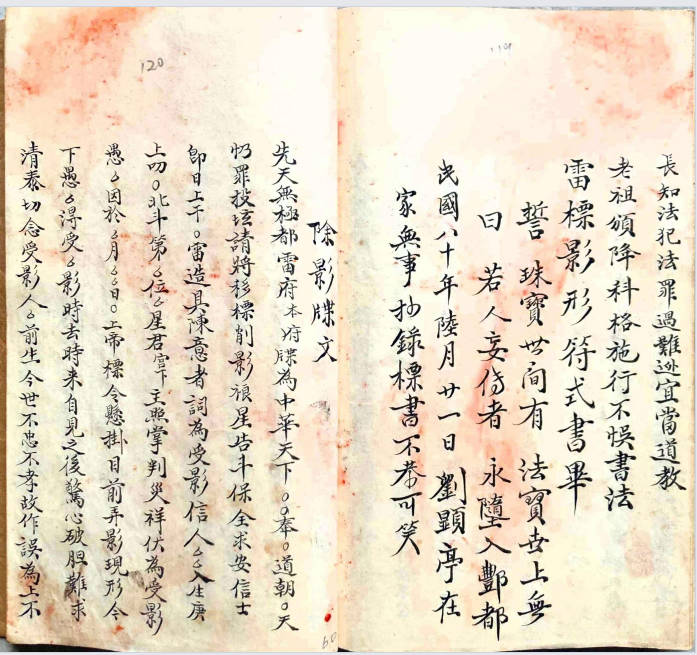 119
長知法犯法罪過難逃宜當道教
老祖頒降科格施行不悞書法
雷標影形符式書畢
誓 珠寶世间有 法寶世上無
曰 若人妄傳者 永墮入酆都
民國八十年陸月廿一日 劉顕亭在
家無事抄錄標書不恭可笑
120
除影牒文
先天無極都雷府本府牒為中華天下〇〇奉〇道朝〇天
礽罪投坛請將移標削影禳星告斗保全求安信士
即日上干〇雷造具陳意者詞為受影信人〻〻入生庚
上叩〇北斗第〻位〻星君宰主照掌判災祥伏為受影
愚〻因於〻月〻〻日〇上帝標令懸掛目前弄影現形令
下愚〻得受〻影時去時来自見之後驚心破胆難求
清泰切念受影人〻前生今世不忠不孝故作誤為上不
60